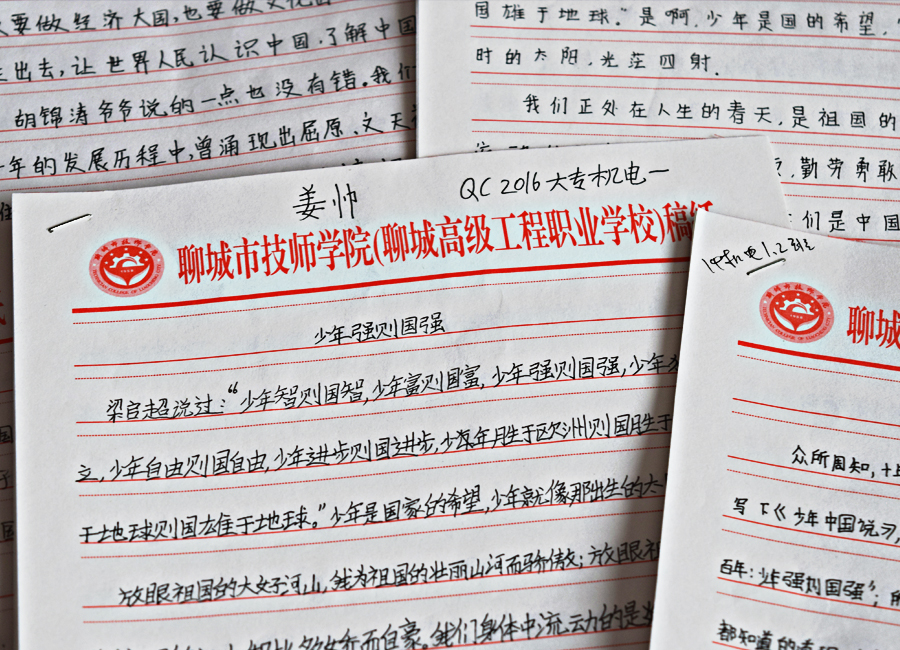 要做经济大国,也要做文化
出去,让世界人民认识中国.了解中国
胡锦涛爷爷说的一点也没有错。我们
年的发展历程中,曾涌现出屈原、文天
国雄于地球。"是啊,少年是国的希望,
时的太阳,光茫四射.
我们正处在人生的春天,是祖国的
,勤劳勇敢
们是中国
姜帅 QC 2016大专机电一
聊城市技师学院(聊城高级工程职业学校)稿纸
少年强则国强
梁启超说过:“少年智则国智,少年富则国富,少年强则国强,少年
立,少年自由则国自由,少年进步则国进步,少年胜于欧洲则国胜于
于地球则国雄于地球。”少年是国家的希望,少年就像那出生的太
放眼祖国的大好河山,我为祖国的壮丽山河而骄傲;放眼祖
而自豪。我们身体中流动的是
机电1.2班
聊城
众所周知,
写下《少年中国说》,
百年:少年强则国强”;
都知道的